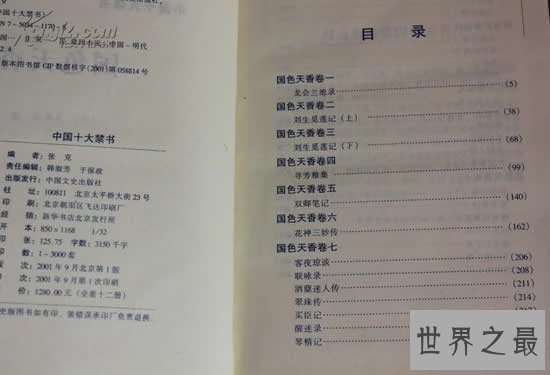 中国十大禁书
编 者 张 克
责任编辑 韩淑芳 于保政
出版发行 中国文史出版社
社 址 100811 北京太平桥大街23号
印 刷 北京朝阳区飞达印刷厂
经 销 新华书店北京发行所
开 本 850×1168 1/32
印 张 125.75 字数:3150千字
印 数 1-3000套
版 次 2001年9月北京第1版
印 次 2001年9月第1次印刷
定 价 1280.00(全套十二册)
史版图书如有印、装错误承印厂负责退换。
目 录
国色天香卷一
龙会兰池录 (5)
国色天香卷二
刘生觅莲记(上) (38)
国色天香卷三
刘生觅莲记(下) (68)
国色天香卷四
寻芳雅集 (99)
国色天香卷五
双卿笔记 (140)
国色天香卷六
花神三妙传 (162)
国色天香卷七
客夜琼谈 (206)
联咏录 (208)
酒蘖迷人传 (211)
翠珠传 (214)
买臣记
醒迷录
琴精记
世界之最